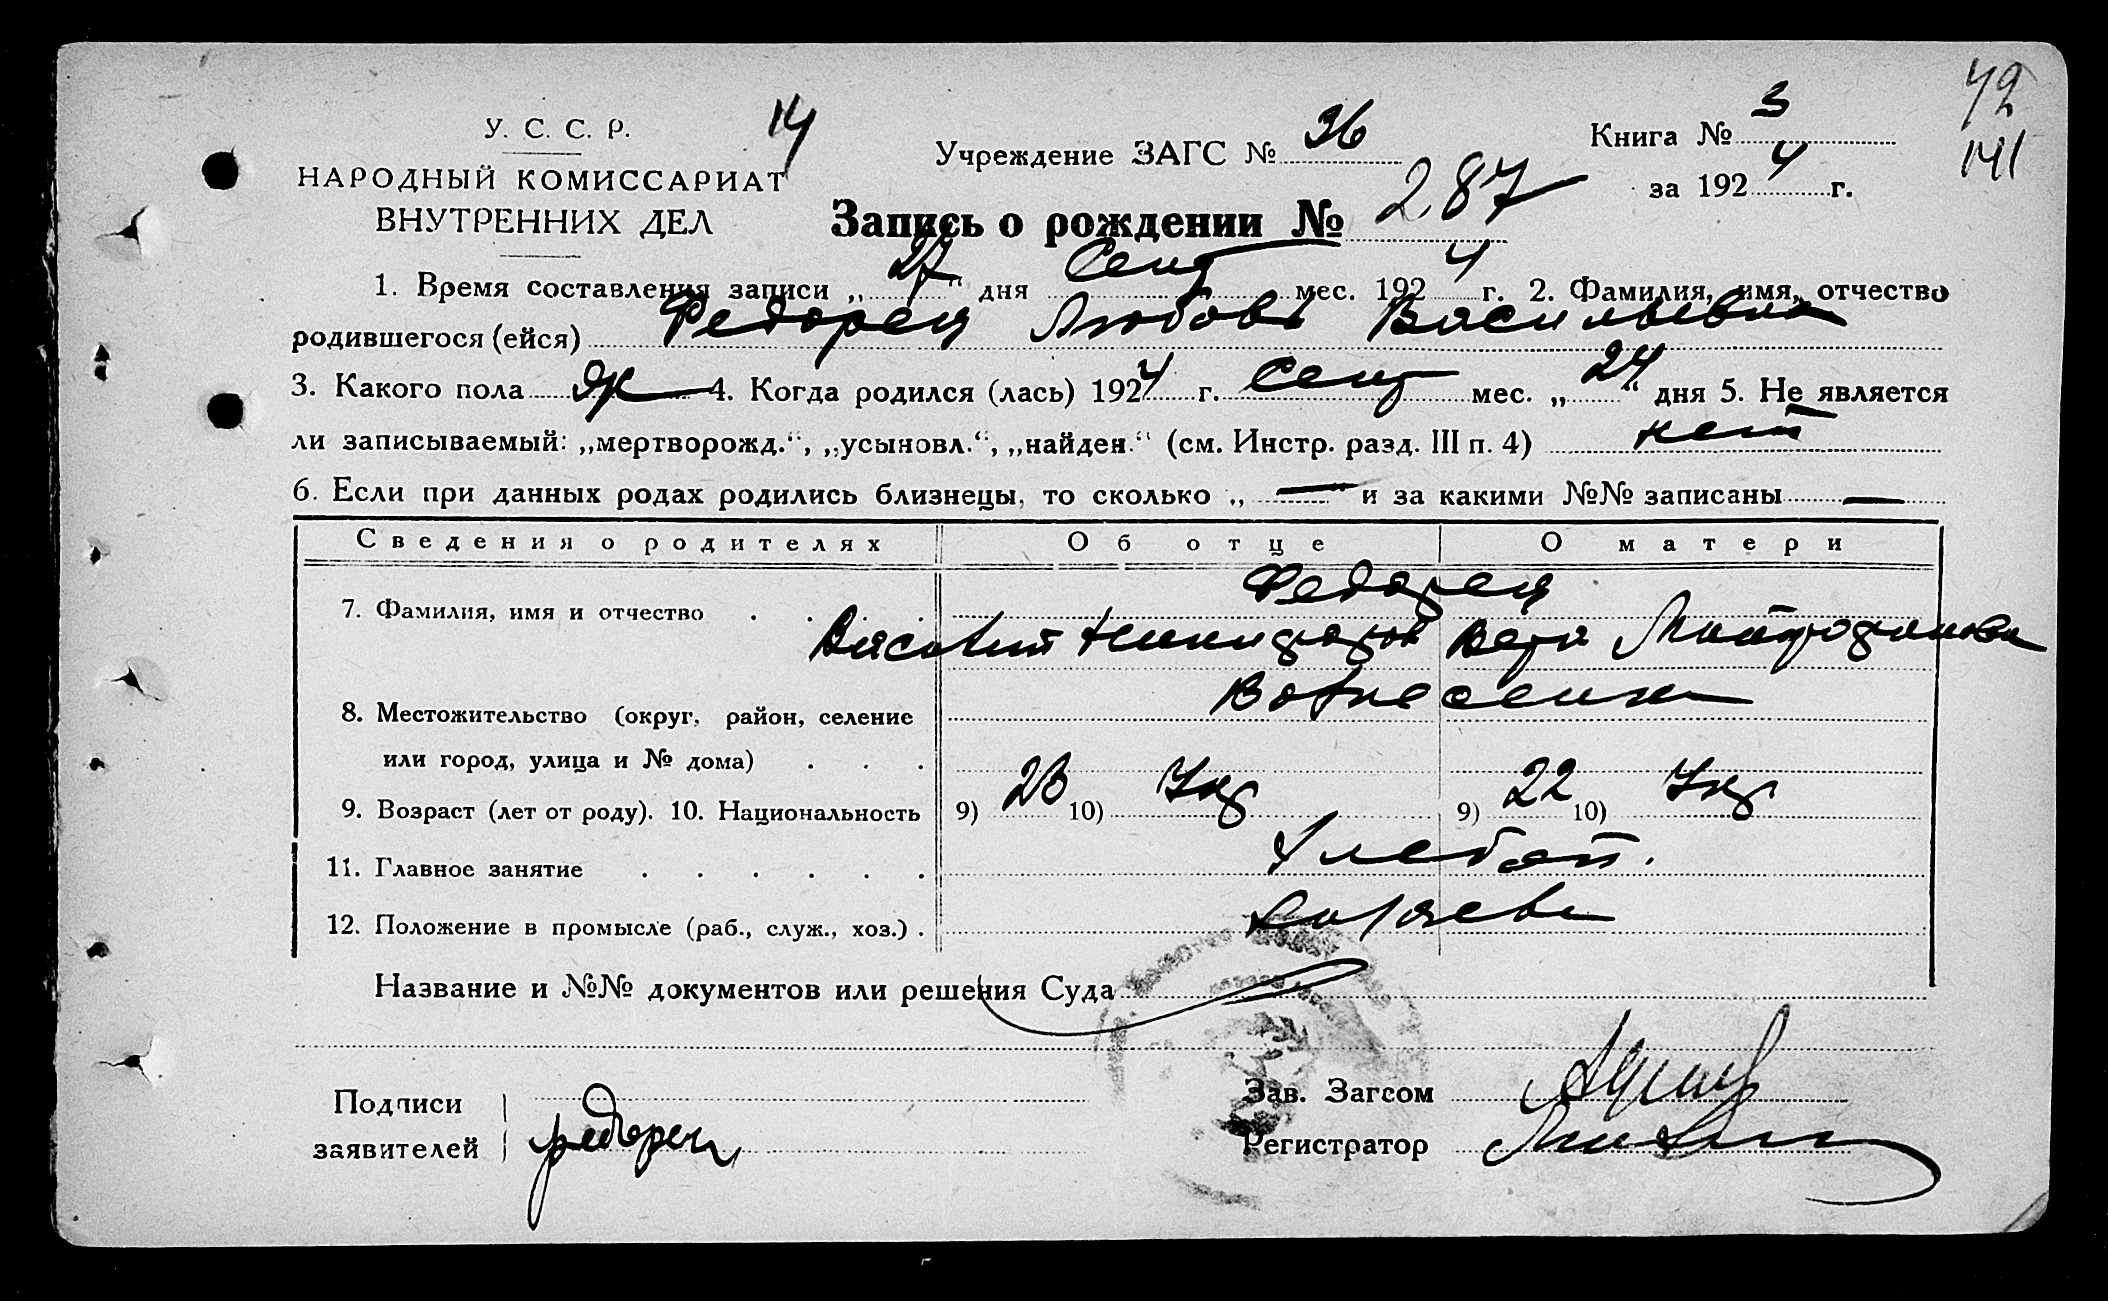 42
У. С. С. Р. 14 Учреждение ЗАГС № 36 Книга № 3 141
НАРОДНЫЙ КОМИССАРИАТ за 1924 г.
ВНУТРЕННИХ ДЕЛ Запись о рождении № 287
1. Время составления записи „27“ дня Сент мес. 1924 г. 2. Фамилия, имя, отчество
родившегося (ейся) Федорец Любовь Васильевна
3. Какого пола Ж 4. Когда родился (лась) 1924 г. Сент мес. „24“ дня 5. Не является
ли записываемый: „мертворожд.“, „усыновл.“, „найден.“ (см. Инстр. разд. III п. 4) нет
6. Если при данных родах родились близнецы, то сколько „—“ и за какими №№ записаны —
Сведения о родителях Об отце О матери
Федорец
7. Фамилия, имя и отчество . . . .
Василий Никифоров Вера Митрофановна
8. Местожительство (округ, район, селение Вознесенка
или город, улица и № дома) . . .
9. Возраст (лет от роду). 10. Национальность 9) 23 10) Укр 9) 22 10) Укр
11. Главное занятие . . . . . . Хлебоп.
12. Положение в промысле (раб., служ., хоз.) . хозяева
Название и №№ документов или решения Суда
Подписи Зав. Загсом
заявителей Федорец Регистратор